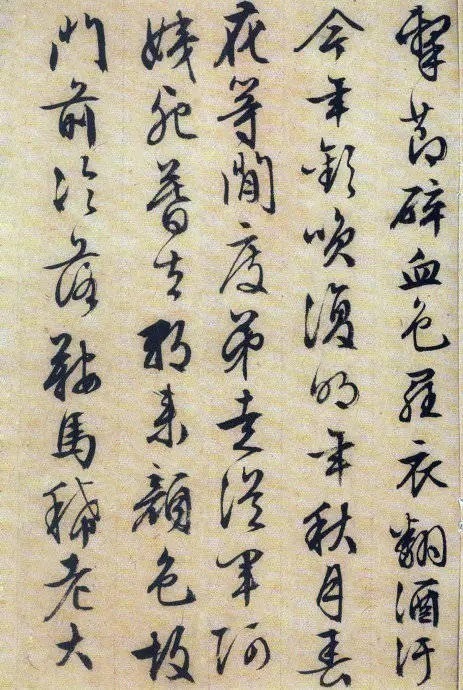 擊節碎血色羅衣翻酒汙
今年歡咲復明年秋月春
花等閒度弟走從軍阿
姨死暮去朝来顏色故
門前冷落鞍馬稀老大